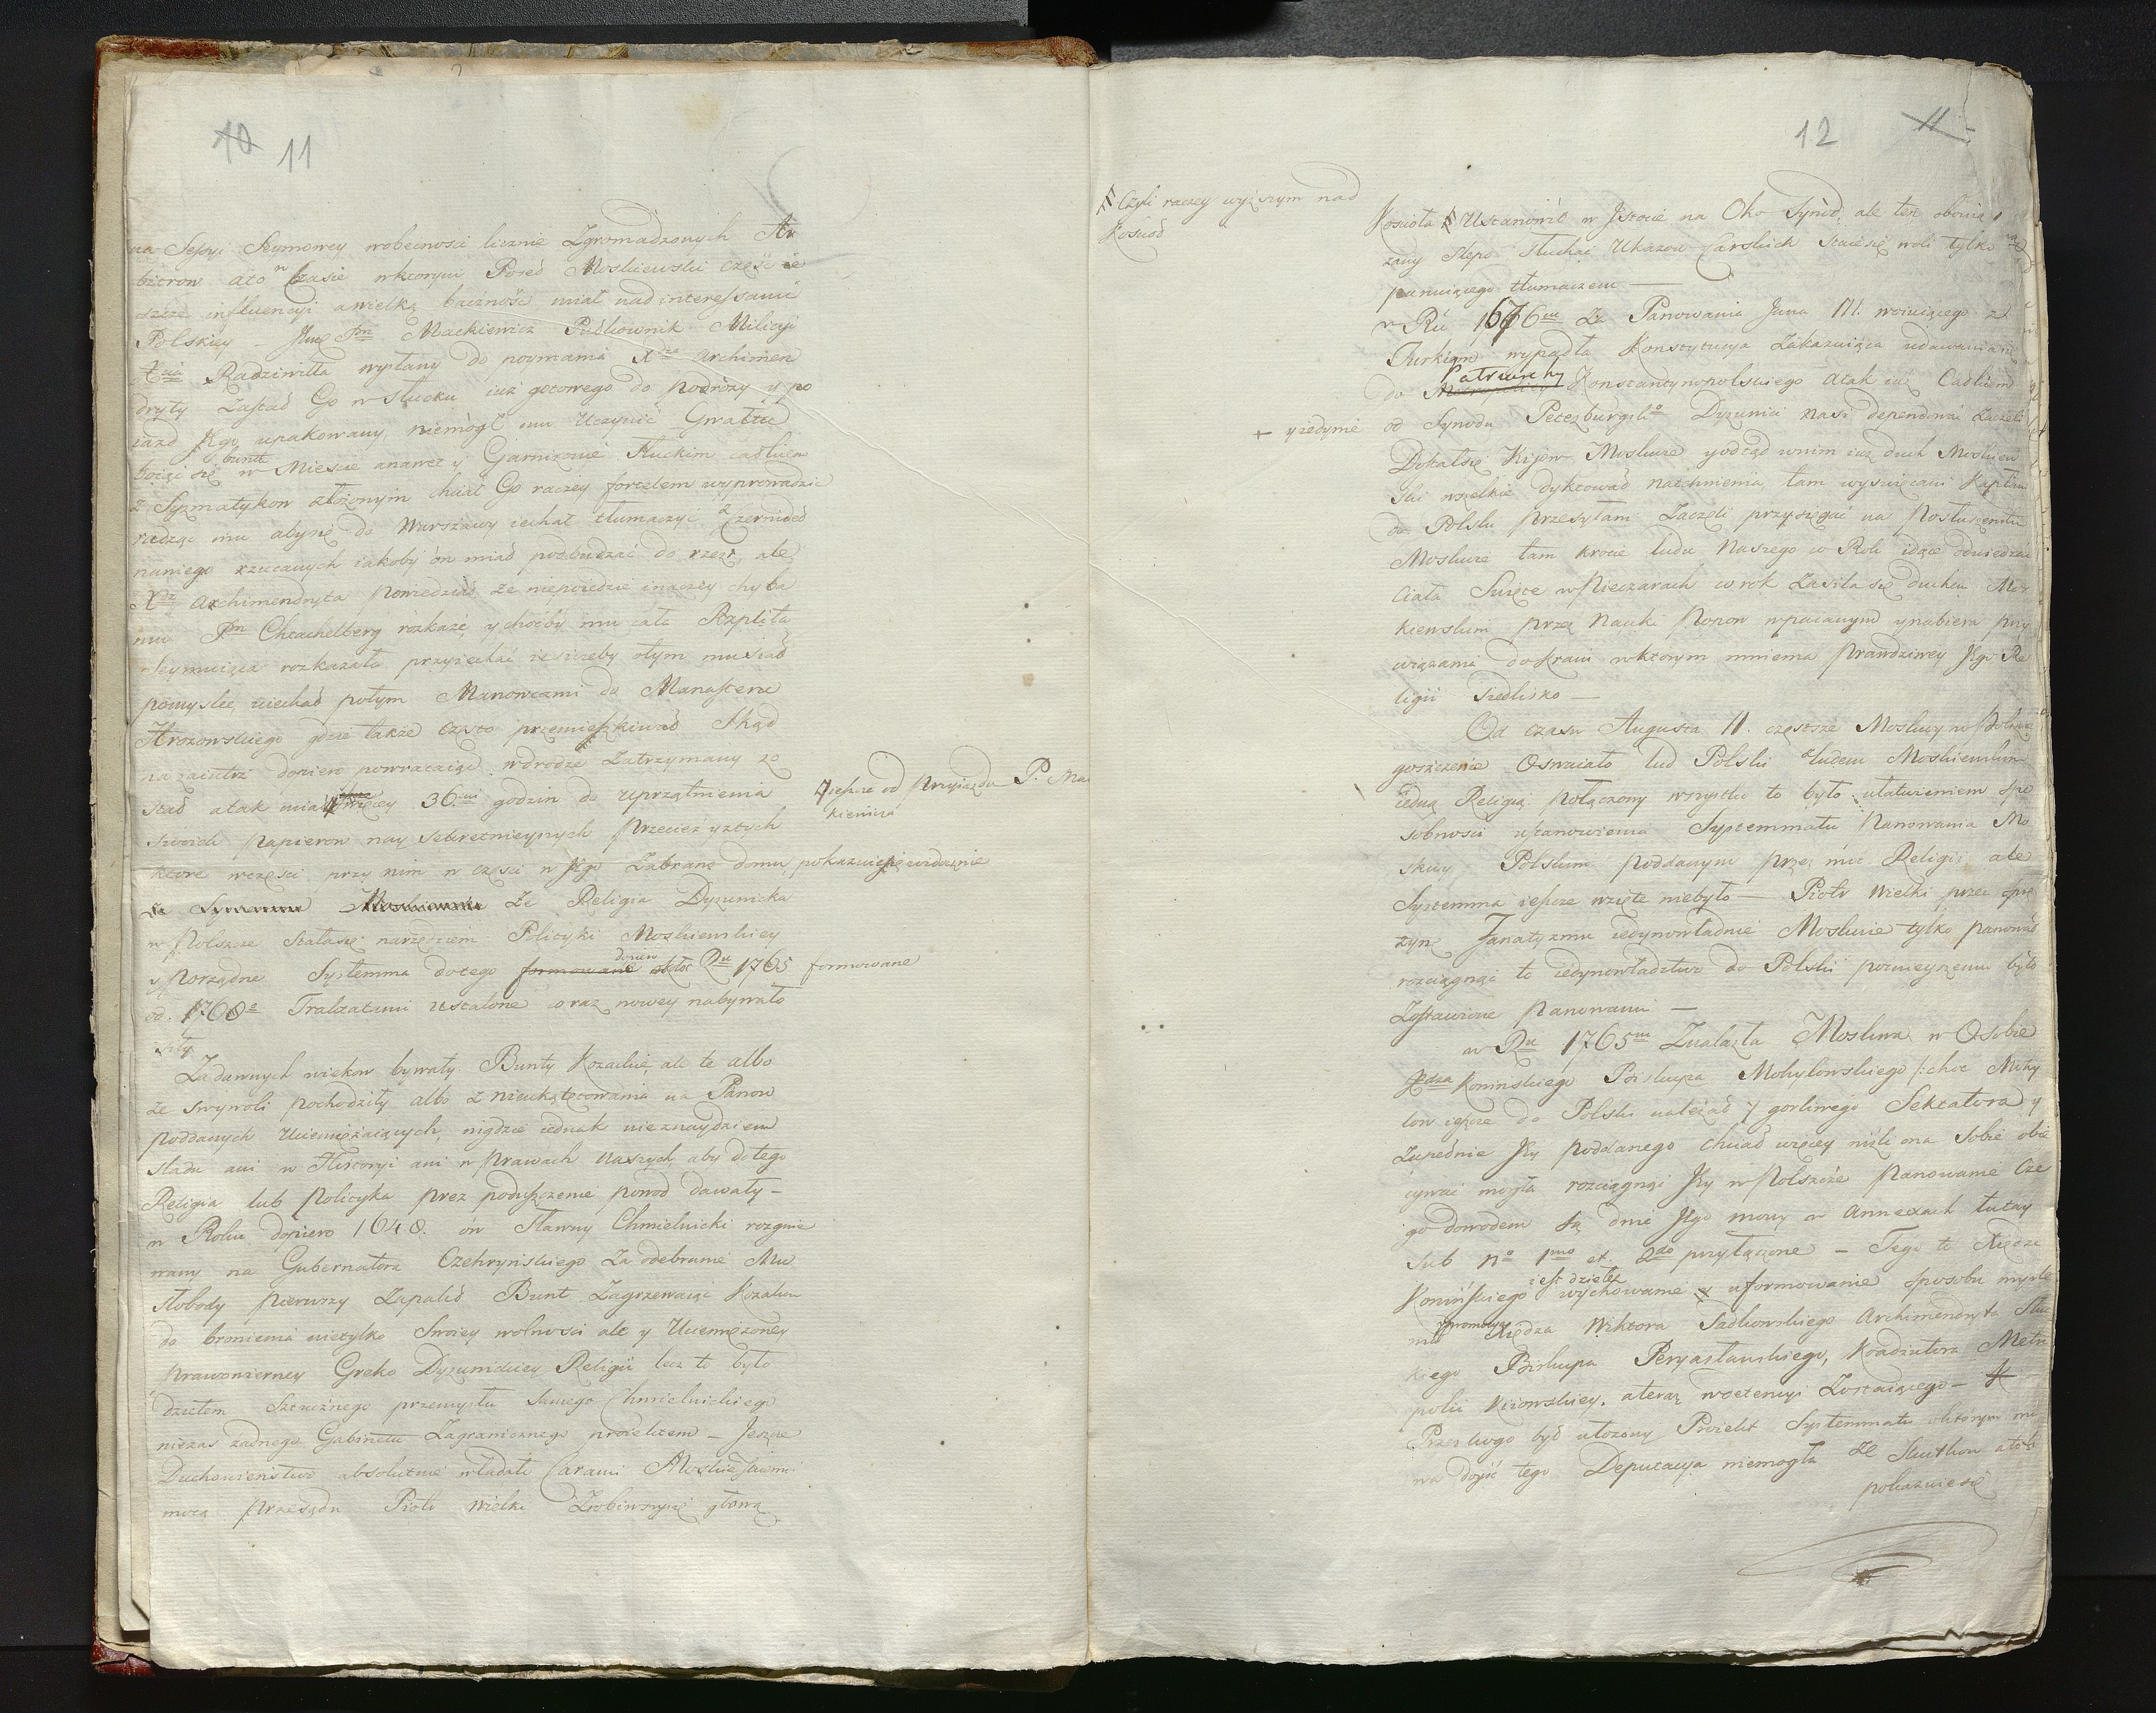 10 11
na Sessyi Seymowey wobecnosci licznie Zgromadzonych Ar
bitrow ato w Czasie wktorym Poseł Moskiewski
influencyi awielką baczność miał nad interessami
Polskiey – Jmę Pn Mackiewicz Pułkownik Milicyi
Xcia Radziwiłła wysłany do poymania Xdza Archimen
dryty Zastał Go w Słucku iuż gotowego do podroży y po
iazd Jego upakowany, niemógł mu Uczynić Gwałtu
boiąc się buntu w Miescie anawet y Garnizonie Słuckim całkiem
z Syzmatykow złożonym chciał Go raczey fortelem wyprowadzić
radząc mu abysię do Warszawy iechał tłumaczyć z czernideł
naniego rzucanych iakoby ón miał podbudzać do rzezi, ale
Xdz Archimendryta powiedział że niepoiedzie inaczey chyba
mu Pn Chtachelberg rozkaże, ychoćby mu cała Rzplita
Seymuiąca rozkazała przyiechać ieszczeby otym musiał
pomyslec, uiechał potym Manowcami do Manasteru
Hrozowskiego gdzie także często przemieszkiwał Skąd
nazaiutrz doniero powracaiąc wdrodze Zatrzymany zo
stał atak miał więcey 36.ciu godzin do uprzątnienia
ieszcze od Przyiazdu P. Mac
kiewicza
Swoich papierow nay Sekretnieyszych przecież yztych
ktore wczęsci przy nim w częsci w Jego Zabrane domu, pokazuiesię widocznie
że Religia Dyzunicka
w Polszcze Stałasię narzędziem Polityki Moskiewskiey
y Porządne Systemma dotego formowane dopiero Ru 1765 formowane
od. 1768o Traktatami ustalone oraz nowey nabywało
siły
Zadawnych wiekow bywały Bunty Kozackie, ale te albo
ze Swywoli pochodziły albo z nieukątętowania na Panow
poddanych Uciemiężaiących, nigdzie iednak nieznaydziem
sladu ani w Historyi ani w Prawach naszych, aby dotego
Religia lub Polityka przez poduszczenie powod dawały –
w Roku dopiero 1648. ów Sławny Chmielnicki rozgnie
wany na Gubernatora Czehryńskiego Za odebranie Mu
Słobody pierwszy Zapalił Bunt Zagrzewaiąc Kozakow
do bronienia nietylko Swoiey wolnosci ale y Uciemiężoney
Prawowierney Greko Dyzunickiey Religii lecz to było
dziełem Sztucznego przemysłu Samego Chmielnickiego
niezas żadnego Gabinetu Zagranicznego proiektem – Jeszcze
Duchowieństwo absolutnie władało Carami Moskiewskiemi
mocą przesądu Piotr Wielki Zrobiwszysię głową
12 11
# Czyli raczey wyższym nad
Kosciół
Kościoła # Ustanowił w Jstocie na Oko Synod, ale ten obowią
zany slepo Słuchać Ukazow Carskich Stałsię woli tylko
panuiącego tłumaczem –
w Ru 1676m Za Panowania Jana III. woiuiącego z
Turkiem wypadła Konstytucya Zakazuiąca udawaniasię
do Patryarchy Konstantynopolskiego Atak iuż Całkiem
+ yiedynie
od Synodu Petezburgsko Dyzunici nasi dependować Zaczęli
Dostałsię Kijow Moskwie yodtąd wnim iuż duch Moskiew
ski wszelkie dyktował natchnienia, tam wyswięcani Kapłani
do Polski przesyłani Zaczęli przysięgać na Posłuszeństwo
Moskwie tam krocie ludu Naszego w Rok idące odwiedzać
Ciała Swięte wPieczarach corok Zasila się duchem Mos
kiewskim przez Nauki Popow wpaianym ynabiera przy
wiązania doKraiu wktorym mniema Prawdziwey Jego Re
ligii Siedlisko –
Od czasu Augusta II. częstsze Moskwy w Polszcze
goszczenie Oswaiało lud Polski zludem Moskiewskim
iedną Religią połączony wszystko to było ułatwieniem spo
sobnosci ustanowienia Systemmatu Panowania Mo
skwy Polskim poddanym przez nic Religii, ale
Systemma ieszcze wzięte niebyło – Piotr Wielki przez sprę
żynę Fanatyzmu iedynowładnie Moskwie tylko panował
rozciągnąć to iedynowładztwo do Polski poznieyszemu było
Zostawione Panowaniu –
w Ru 1765m Znalazła Moskwa w Osobie
Xędza Konińskiego Biskupa Mohylowskiego /: choc Mohy
low ieszcze do Polski należał :/ gorliwego Sektatora, y
Zupełnie Jey poddanego chciał więcey niżli ona Sobie obie
cywać mogła rozciągnąć Jey w Polszcze Panowanie Cze
go dowodem Są dwie Jego mowy w Annexach tutay
sub No 1mo et 2do przyłączone – Tego to Xiędza
Konińskiego iest dziełem wychowanie y uformowanie sposobu mysle
nia y promocya Xiędza Wiktora Sadkowskiego Archimendryta Słuc
kiego Biskupa Peryasławskiego, Koadiutora Metro
polii Kiiowskiey, ateraz wdetencyi Zostaiącego –
Przez kogo był ułożony Proiekt Systemmatu oktorym mo
wa doyść tego Deputacya niemogła ze Skutkow atoli
pokazuiesię